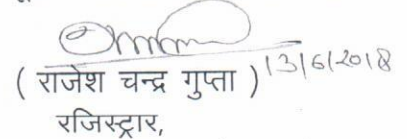 ( राजेश चन्द्र गुप्ता ) 13/6/2018
रजिस्ट्रार,